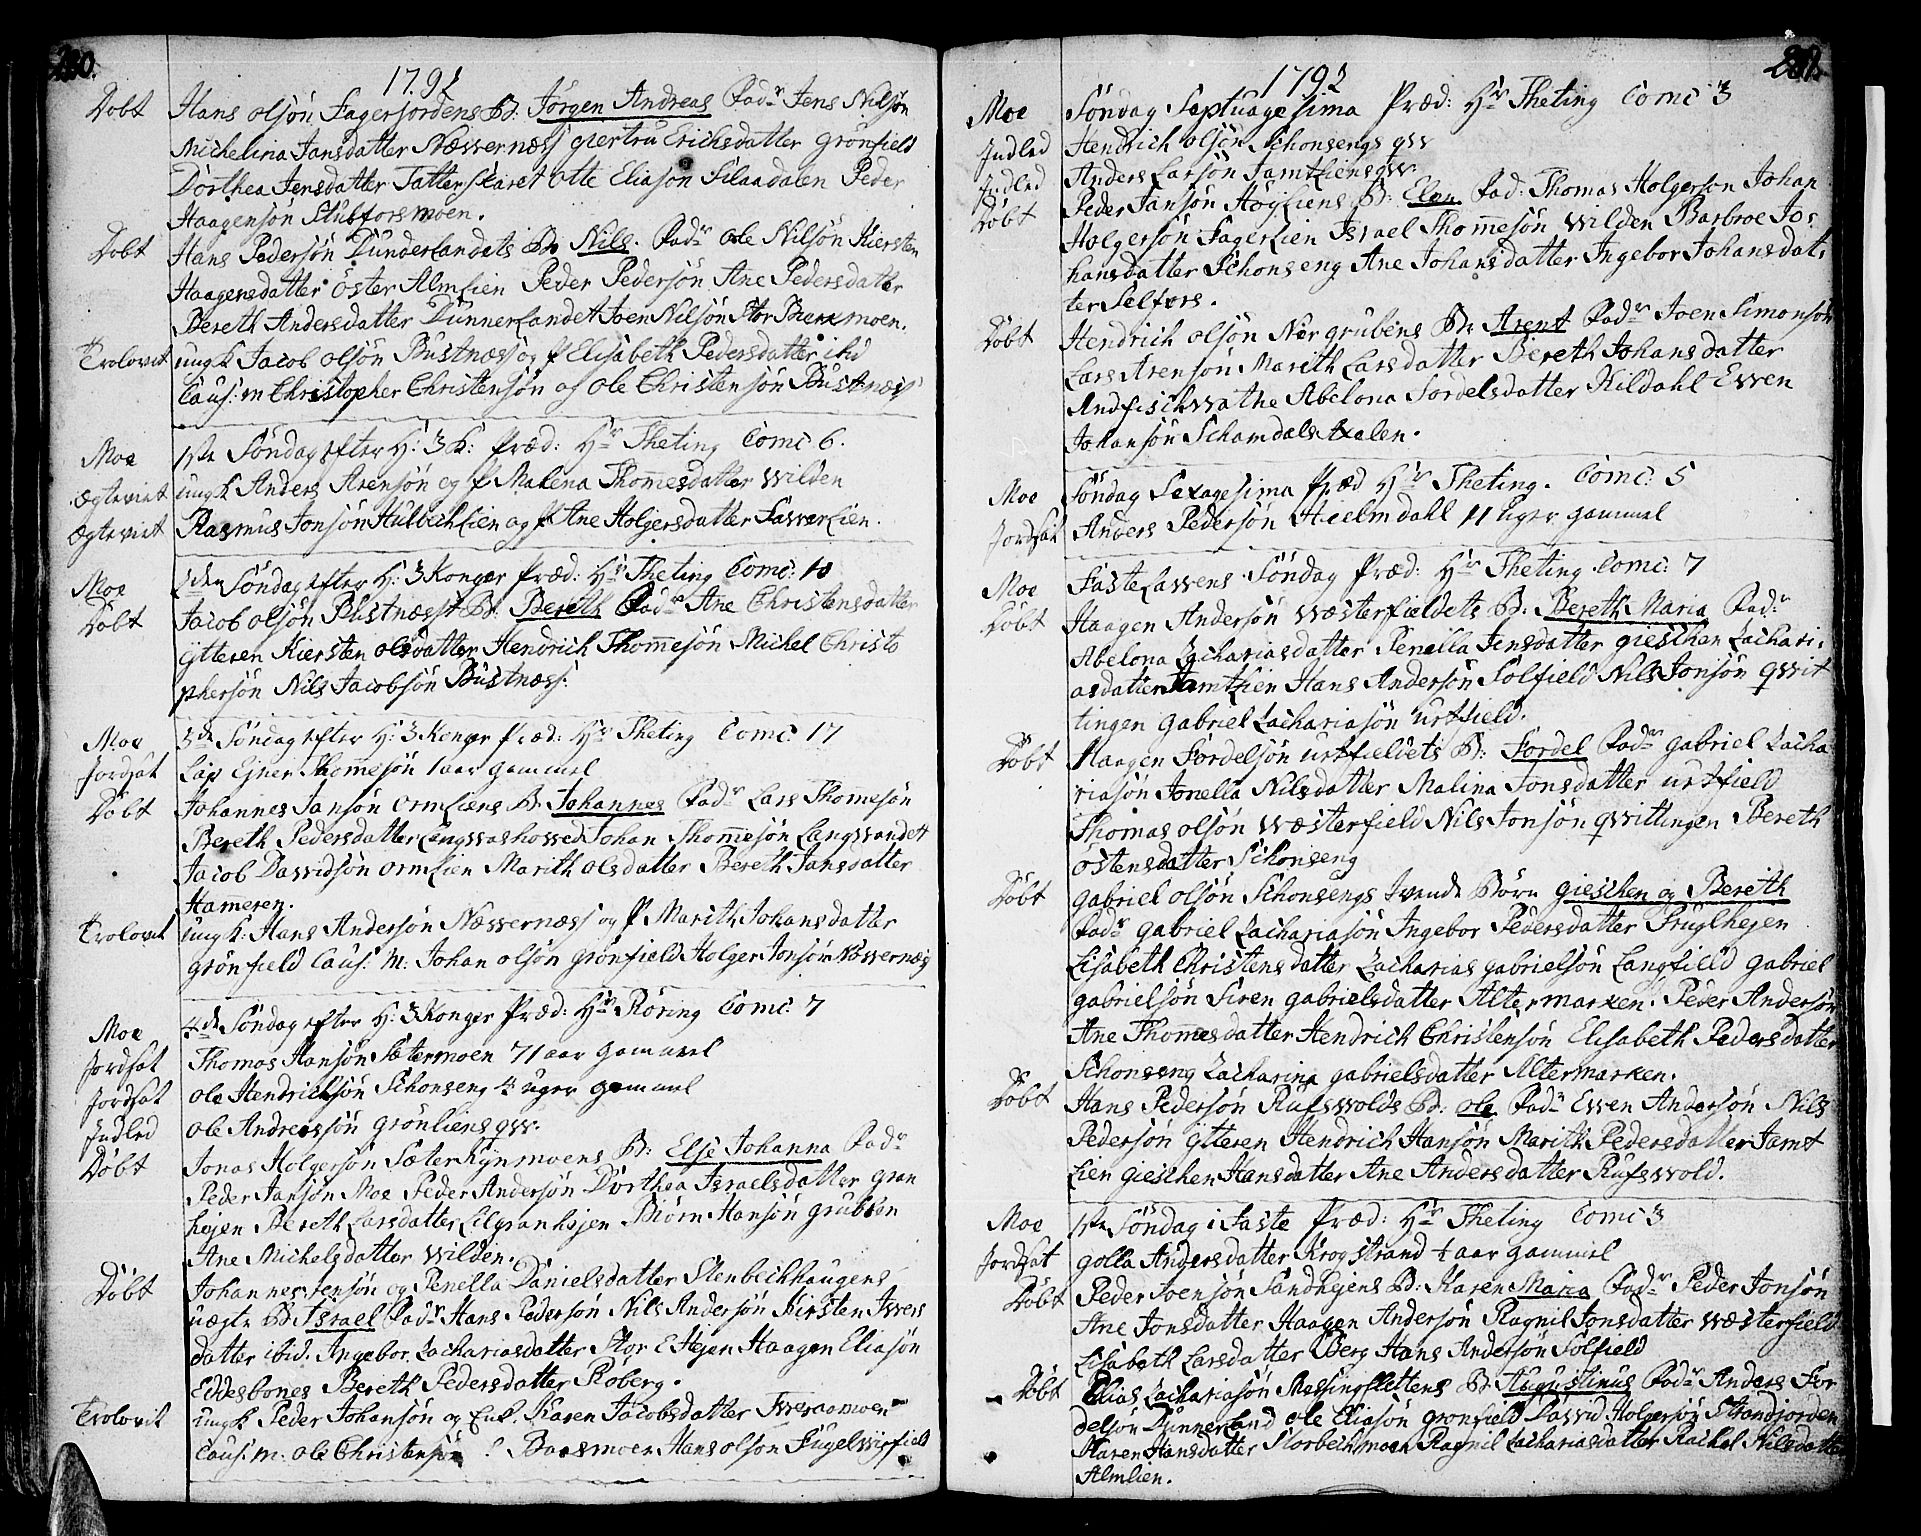 280.
1792
Döbt Hans olsön Fagerjordens B: Jörgen Andreas Fad.r Jens Nilsön
Michelina Jansdatter Næwernæss giertru Erichsdatter grönfield
Dorthea Jensdatter Tatterskaret otte Eliasön Silaadalen Peder
Haagensön Stubforsmoen.
Döbt Hans Pedersön Dunderlandets B. Nils. Fad.r ole Nilsön Kiersten
Haagensdatter öster Almlien Peder Pedersön Ane Pedersdatter
Bereth Andersdatter Dunnerlandet Joen Nilsön Stor moen.
Trolovet ungk Jacob olsön Bustnæss og p Elisabeth Pedersdatter ibid
Caus: m Christopher Christensön og ole Christensön Bustnæss
Moe 1ste Söndag efter H: 3 K: Præd: Hr Theting Comc 6.
Ægteviet ungk Anders Arensön og p Malena Thom̄esdatter Wilden
Ægteviet Rasmus Jonsön Hulbechlien og p Ane Holgersdatter Faswerlien.
Moe 2den Söndag efter H: 3 Konger Præd: Hr Theting Comc: 10
Döbt Jacob olsön Bustnæss B: Bereth Fad.r Ane Christensdatter
ÿtteren Kiersten olsdatter Hendrich Thom̄esön Michel Christo
phersön Nils Jacobsön Bustnæss:
Moe 3de Söndag efter H: 3 Konger Præd: Hr Theting Comc: 17
Jordsat Lap Ejner Thom̄esön 1 aar gammel
Döbt Johannes Jansön ormliens B. Johannes Fad.r Lars Thom̄esön
Bereth Pedersdatter Langwashowed Johan Thom̄esön Langwandet
Jacob Dawidsön ormlien Marith olsdatter Bereth Jansdatter
Hameren.
Trolovet ungk: Hans Andersön Næwernæss og p Marith Johansdatter
grönfield Caus: m. Johan olsön grönfield Holger Jonsön Næwernæs
Moe 4de Söndag efter H: 3 Konger Præd: Hr Röring Comc: 7
Jordsat Thomas Hansön Sætermoen 71 aar gammel
Jordsat ole Hendrichsön Schonseng 4 uger gammel
Indled ole Andreasön grönliens qw.
Döbt Jonas Holgersön Sæter moens B: Else Johanna Fad.r
Peder Jansön Moe Peder Andersön Dorthea Israelsdatter gran
hejen Bereth Larsdatter Lilgranhejen Biörn Hansön gruben
Ane Michelsdatter Wilden.
Döbt Johannes Jensön og Penella Danielsdatter Stenbechhaugens
uægte B. Israel Fad.r Hans Pedersön Nils Andersön Kirsten Iwers
datter ibid. Ingebor Zachariasdatter Stor E Hejen Haagen Eliasön
Eddesbones Bereth Pedersdatter Röberg.
Trolovit ungk Peder Johansön og Enk. Karen Jacobsdatter moen
Caus: m. ole Christensön Baasmoen Hans olsön Fugelwigfield
281.
1792
Moe Söndag Septuagesima Præd: Hr Theting Comc 3
Indled Hendrich olsön Schonsengs qw
Indled Anders Larsön Jamtliens qw.
Döbt Peder Jansön Högliens B: Elen Fad: Thomas Holgersön Johan
Holgersön Fagerlien Israel Thom̄esön Wilden Barbroe Jo:
hansdatter Schonseng Ane Johansdatter Ingebor Johansdat:
ter Selfors.
Döbt Hendrich olsön Nergrubens B: Arent Fad.r Joen Simonsön
Lars Arensön Marith Larsdatter Bereth Johansdatter
Andfischwathne Abelona Fordelsdatter Hildahl Ewen
Johansön Schamdals .
Moe Söndag Sexagesima Præd Hr Theting. Comc: 5
Jordsat Anders Pedersön Hielmdahl 11 Uger gammel
Moe Fastelawens Söndag Præd: Hr Theting Comc: 7
Döbt Haagen Andersön Wæsterfieldets B: Bereth Maria Fad.r
Abelona Zachariasdatter Penella Jensdatter gieschen Zachari:
asdatter Jamtlien Hans Andersön Solfield Nils Jonsön qwit
tingen gabriel Zachariasön urtfield.
Döbt Haagen Fordelsön urtfieldets B: Fordel Fad.r gabriel Zacha
riasön Jonella Nilsdatter Malina Jonsdatter urtfield
Thomas olsön Wæsterfield Nils Jonsön qwittingen Bereth
östensdatter Schonseng
Döbt gabriel olsön Schonsengs twende Börn gieschen og Bereth
Fad.r gabriel Zachariasön Ingebor Pedersdatter Fruglhejen
Lisabeth Christensdatter Zacharias gabrielsön Langfield gabriel
gabrielsön Siren gabrielsdatter Altermarken. Peder Andersön
Ane Thomesdatter Hendrich Christensön Elisabeth Pedersdatter
Schonseng Zacharina gabrielsdatter Altermarken.
Döbt Hans Pedersön Rufswolds B: ole Fad.r Ewen Andersön Nils
Pedersön ÿtteren Hendrich Hansön Marith Pedersdatter Jamt
lien gieschen Hansdatter Ane Andersdatter Rufswold.
Moe 1ste Söndag i Faste Præd: Hr Theting Comc 3
Jordsat golla Andersdatter Krogstrand 1 aar gammel
Döbt Peder Joensön Sandhejens B: Karen Maria Fad.r Peder Jonsön
Ane Jonsdatter Haagen Andersön Ragnil Jonsdatter Wæsterfield
Lisabeth Larsdatter Berg Hans Andersön Solfield
Döbt Elias Zachariasön Messingslettens B: Augustinus Fad.r Anders For
delsön Dunnerland ole Eliasön grönfield David Holgersön Strandjorden
Karen Hansdatter Storbechmoen Ragnil Zachariasdatter Rachel Nilsdatter
Almlien.